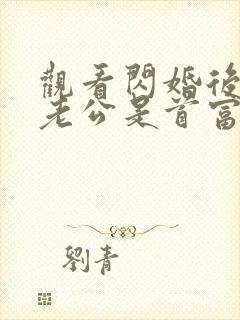 觀看閃婚後
老公是首富
劉青